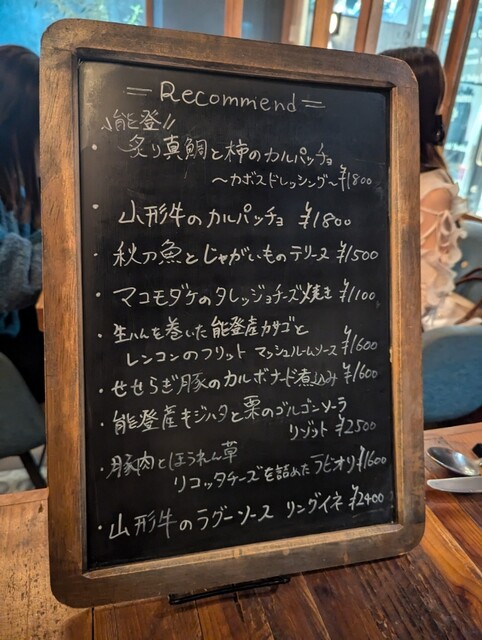 =Recommend=
\\能登//
・炙り真鯛と柿のカルパッチョ
～カボスドレッシング～¥1800
・山形牛のカルパッチョ ¥1800
・秋刀魚とじゃがいものテリーヌ ¥1500
・マコモダケのタレッジョチーズ焼き ¥1100
・生ハムを巻いた能登産カサゴと
レンコンのフリット マッシュルームソース ¥1600
・せせらぎ豚のカルボナード煮込み ¥1600
・能登産キジハタと栗のゴルゴンゾーラ
リゾット ¥2500
・豚肉とほうれん草
リコッタチーズを詰めたラビオリ ¥1600
・山形牛のラグーソース リングイネ ¥2400